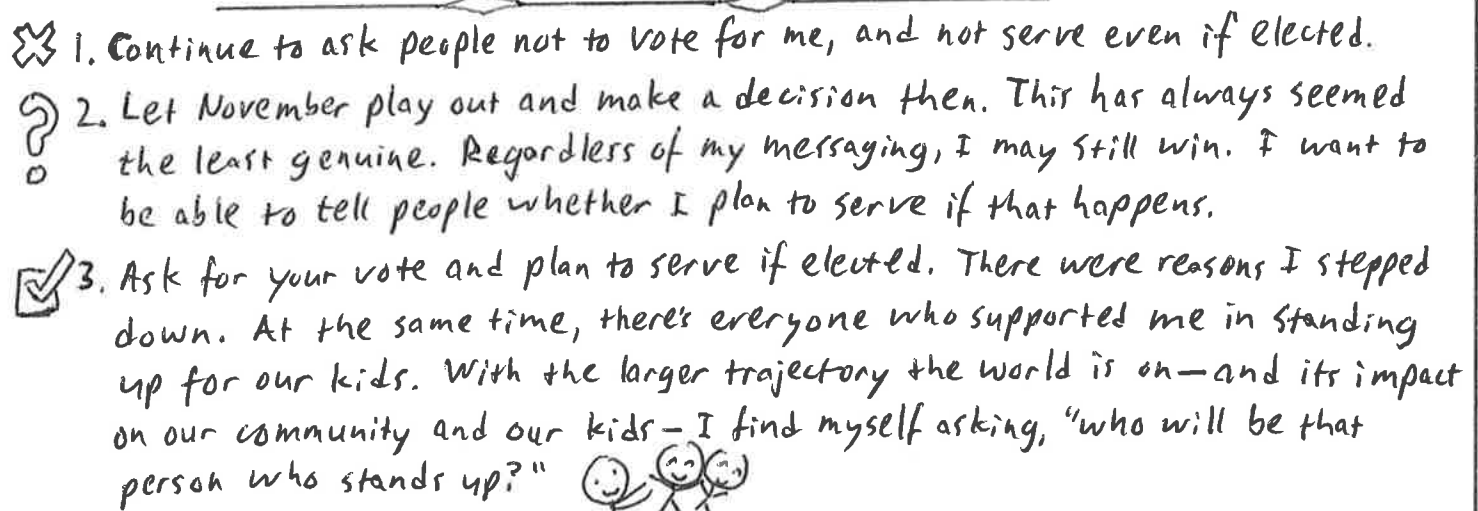 1. Continue to ask people not to vote for me, and not serve even if elected.
2. Let November play out and make a decision then. This has always seemed
the least genuine. Regardless of my messaging, I may still win. I want to
be able to tell people whether I plan to serve if that happens.
3. Ask for your vote and plan to serve if elected. There were reasons I stepped
down. At the same time, there's everyone who supported me in standing
up for our kids. With the larger trajectory the world is on—and its impact
on our community and our kids—I find myself asking, "who will be that
person who stands up?"